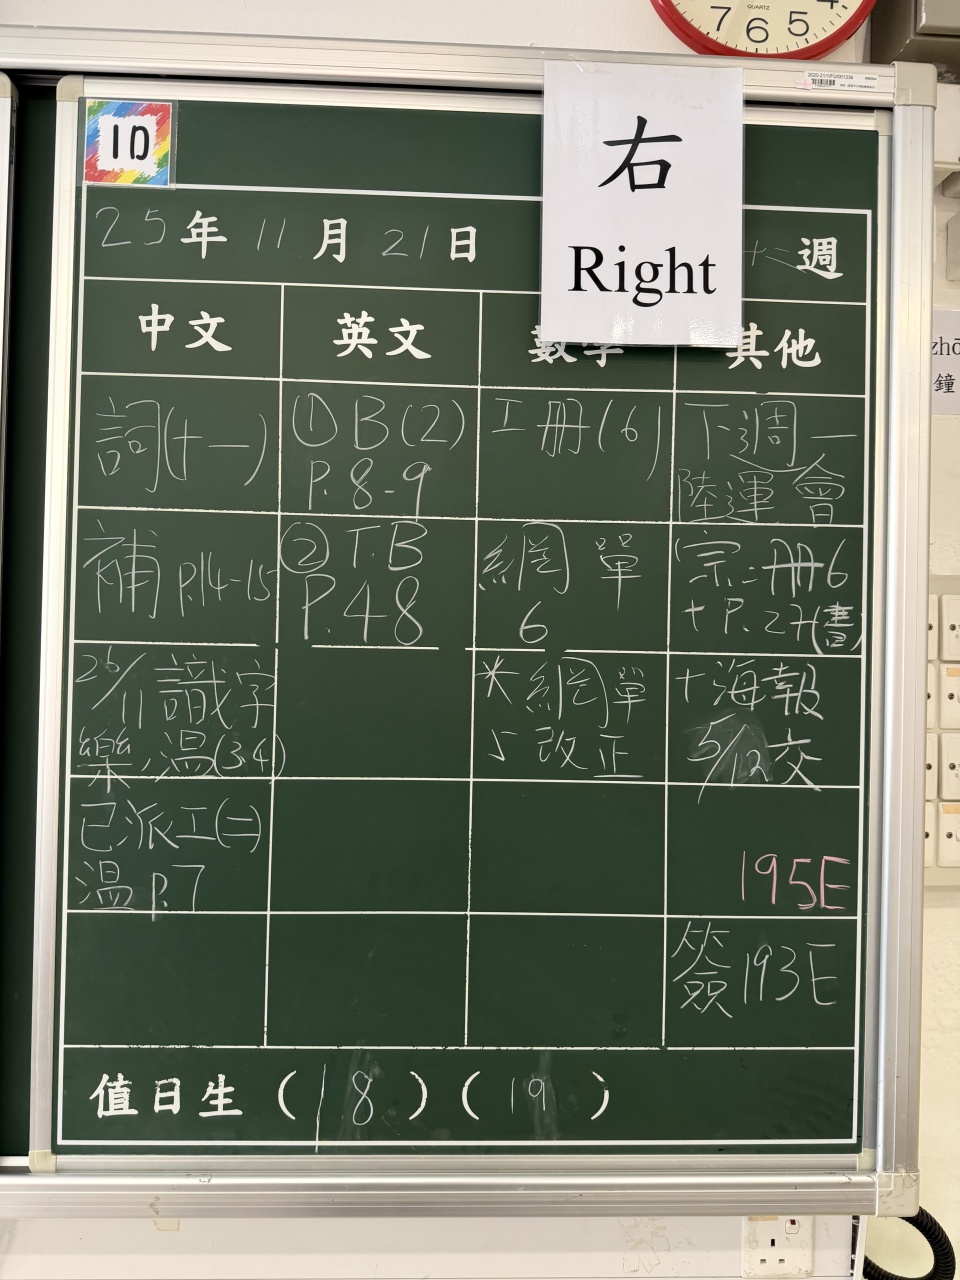 QUARTZ
7 6 5 4
1D
右
Right
25年 11月 21日
週
中文 英文 數學 其他
詞(十一)
① B(2)
P.8-9
工冊(6)
下週一
陸運會
補 P.14-15
② T.B
P.48
網單
6
宗:冊6
+ P.27(書)
26/11識字
樂,溫(3.4)
*網單
5 改正
+海報
5/12交
已派工(二)
溫 P.7
195E
簽193E
值日生 (18) (19)
鐘